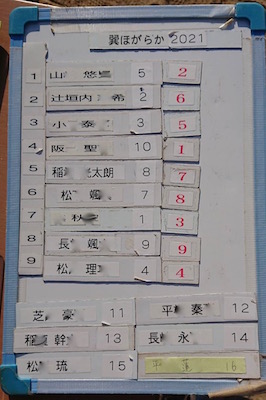 翼ほがらか 2021
1 山 悠 5 2
2 辻垣内 希 2 6
3 小 泰 3 5
4 阪 聖 10 1
5 稲 太朗 8 7
6 松 颯 7 8
7 秋 1 3
8 長 颯 9 9
9 松 理 4 4
芝 豪 11 平 秦 12
稲 幹 13 長 永 14
松 琉 15 平 蓮 16